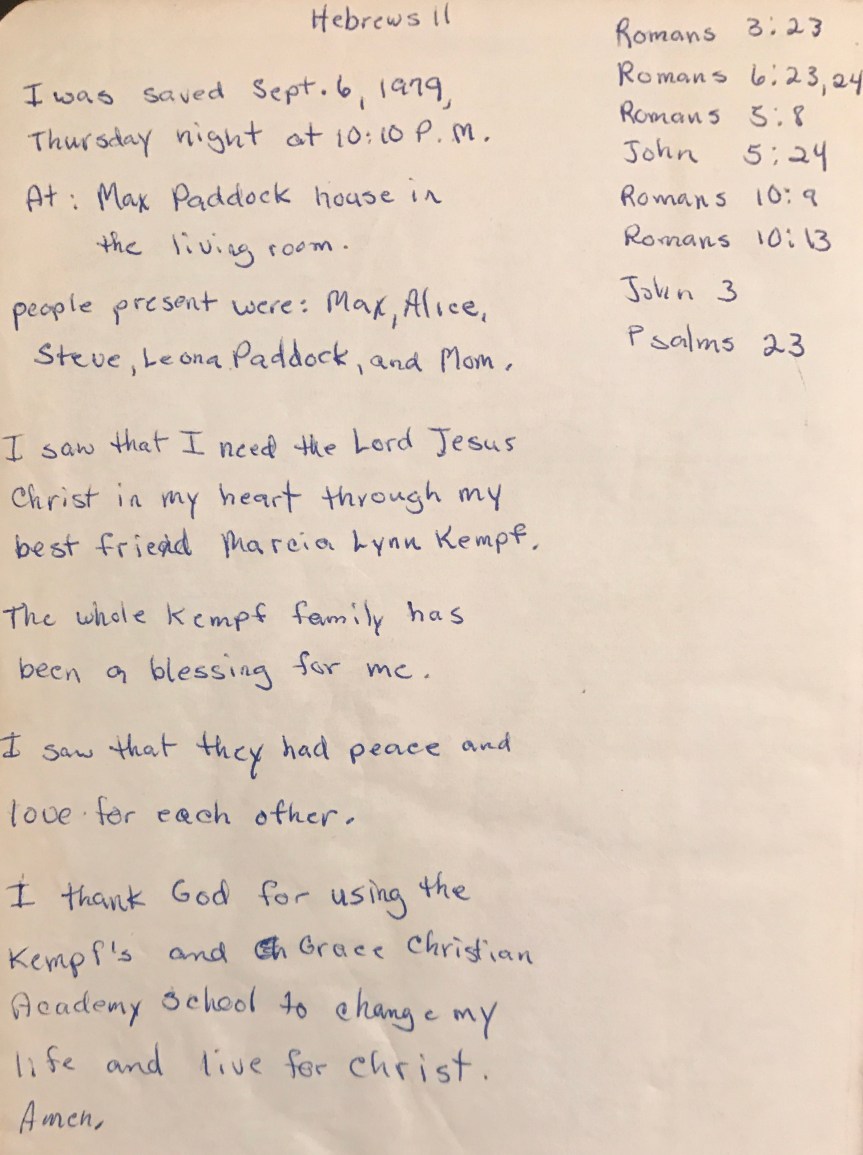 Hebrews 11
I was saved Sept. 6, 1979,
Thursday night at 10:10 P.M.
At: Max Paddock house in
the living room.
people present were: Max, Alice,
Steve, Leona Paddock, and Mom.
I saw that I need the Lord Jesus
Christ in my heart through my
best friend Marcia Lynn Kempf.
The whole Kempf family has
been a blessing for me.
I saw that they had peace and
love for each other.
I thank God for using the
Kempf's and Ch Grace Christian
Academy School to change my
life and live for Christ.
Amen,
Romans 3:23
Romans 6:23,24
Romans 5:8
John 5:24
Romans 10:9
Romans 10:13
John 3
Psalms 23